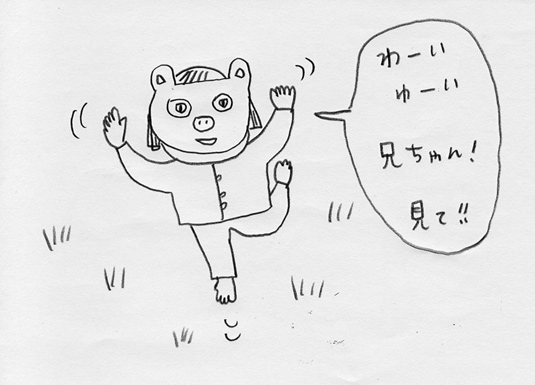 わーい
わーい
兄ちゃん!
見て!!